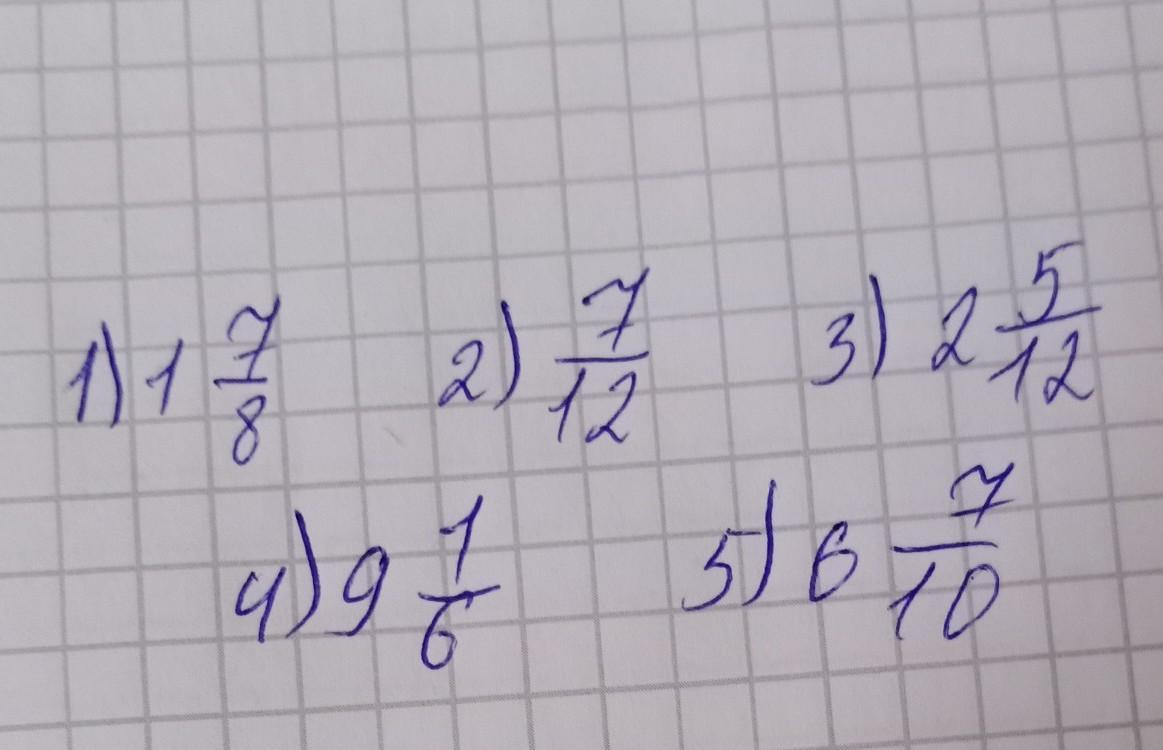 1) 1 7/8 2) 7/12 3) 2 5/12
4) 9 1/6 5) 6 7/10